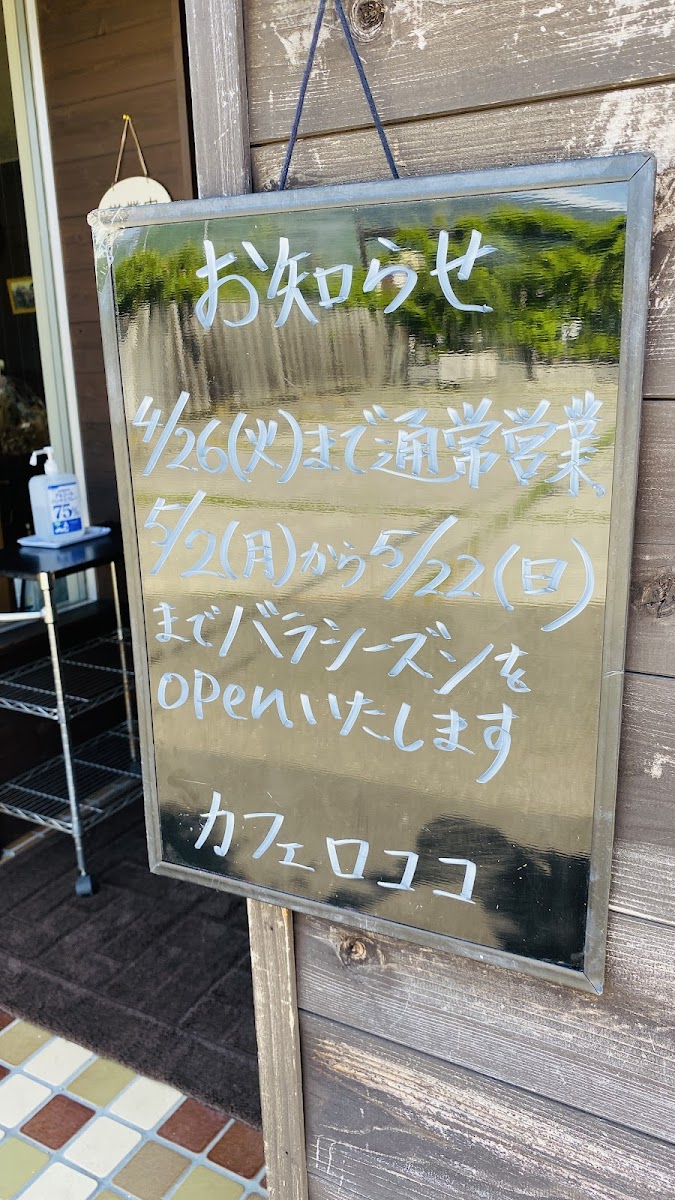 お知らせ
4/26(火)まで通常営業
5/2(月)から5/22(日)
までバラシーズンを
openいたします
カフェロココ
75%